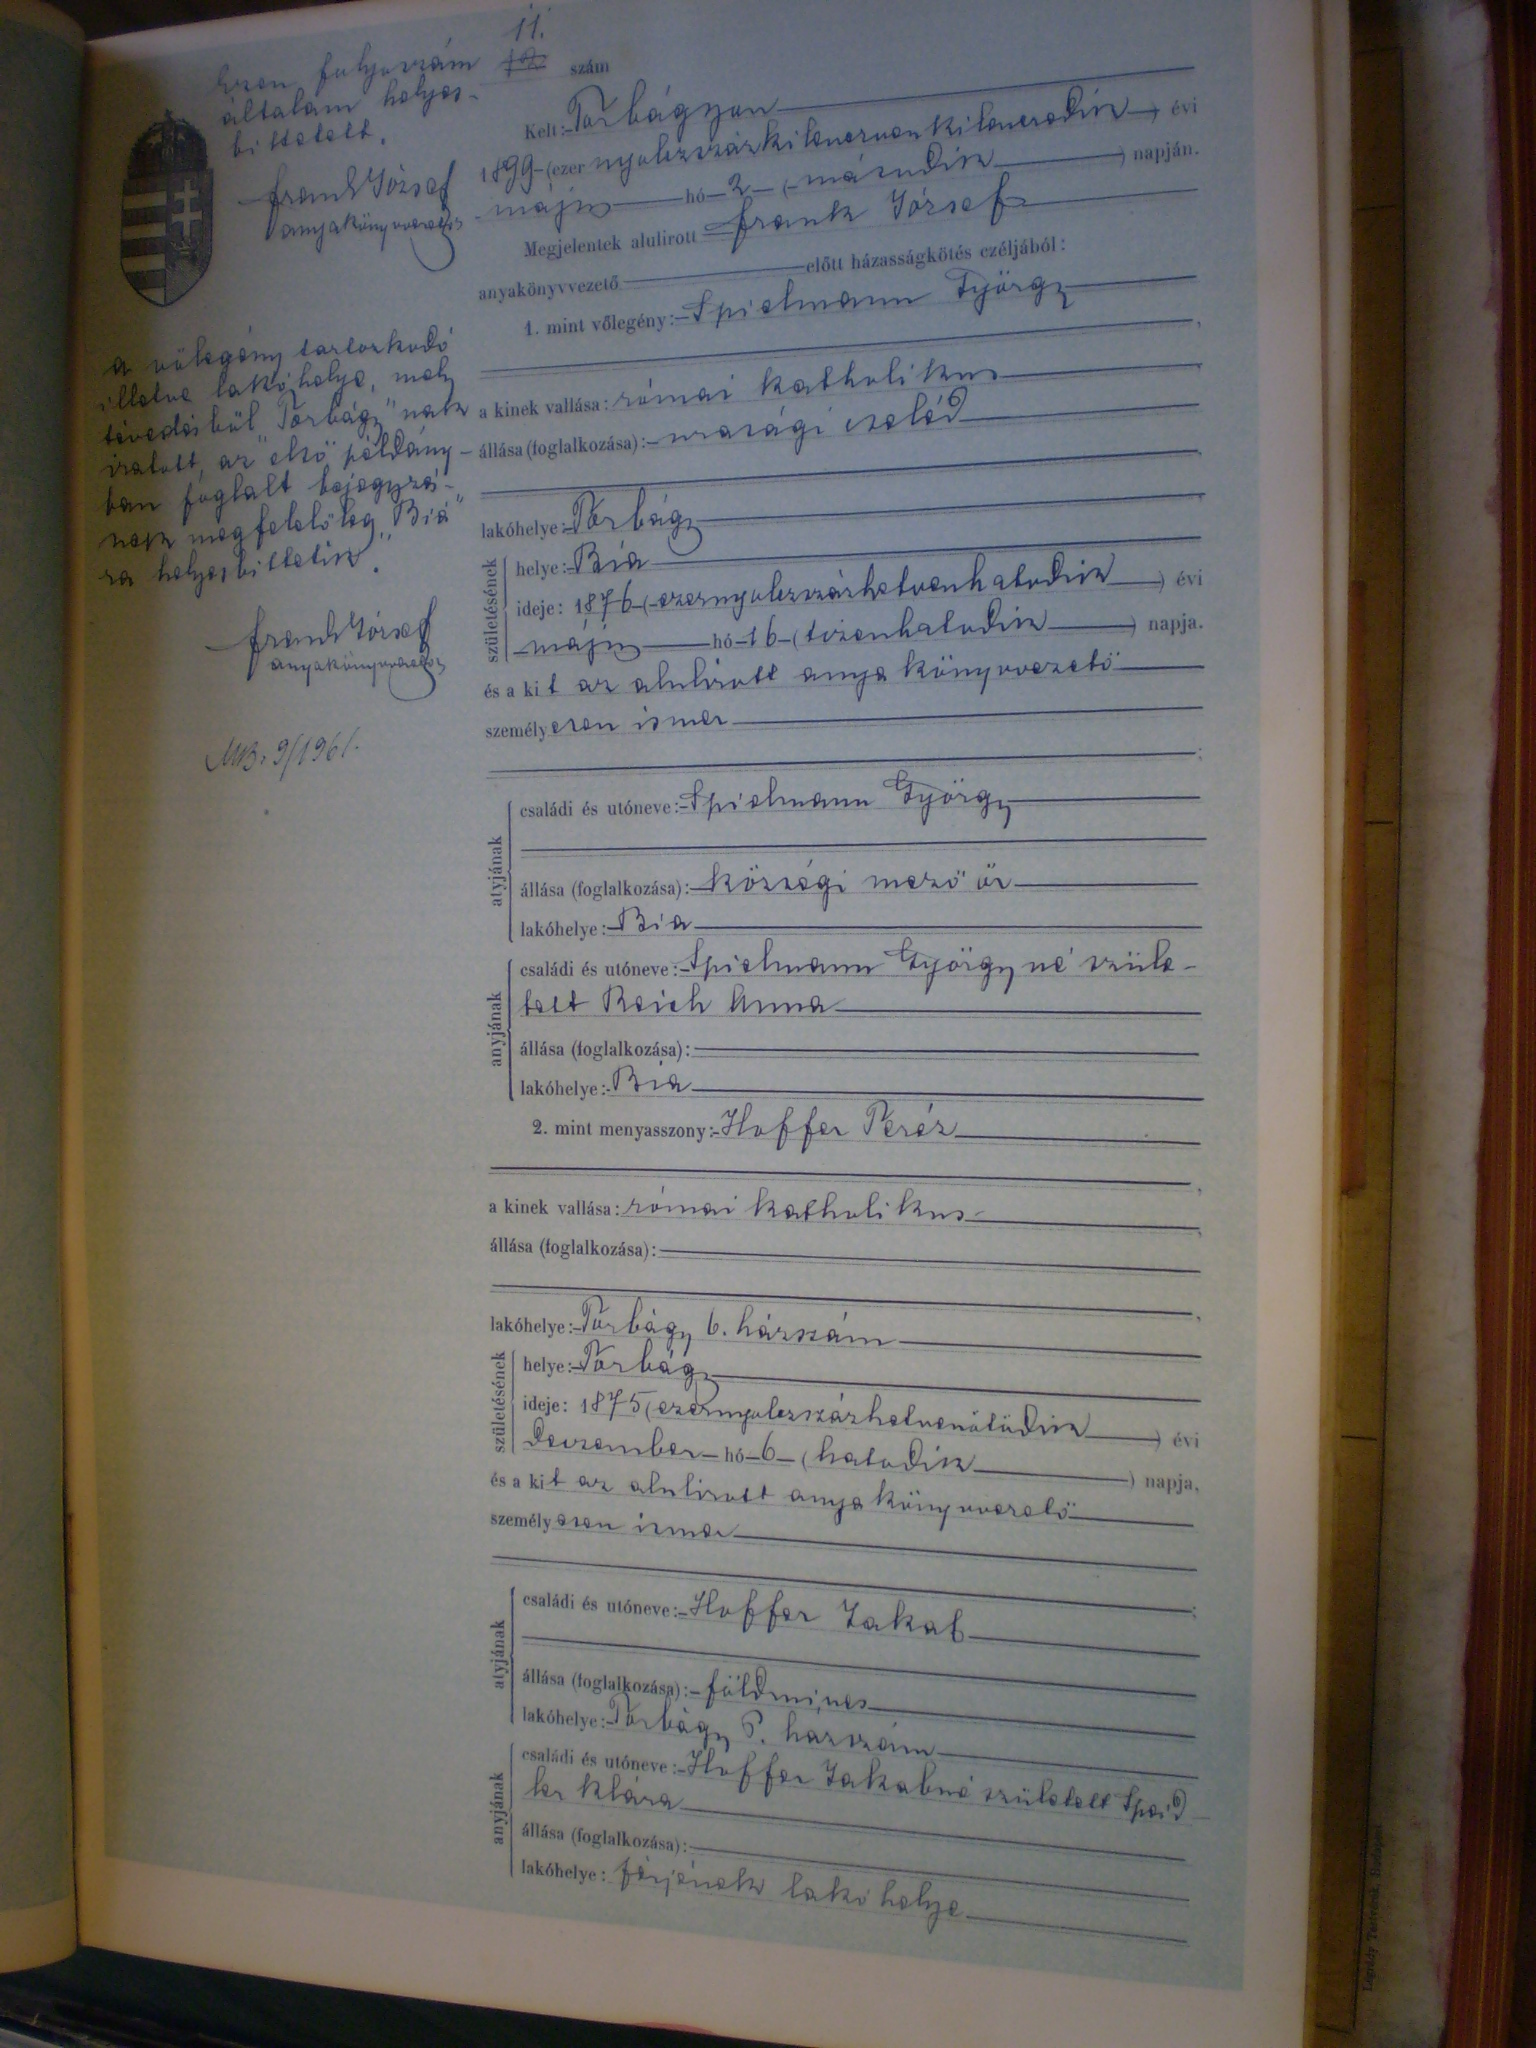 11.
szám
Ezen folyószám
általam helyes-
bittetett.
Frank József
anyakönyvvezető
Kelt: Torbágyon
1899 (ezer nyolczszázkilenczvenkilenczedik) évi
május hó 2 (második) napján.
Megjelentek alulirott Frank József
anyakönyvvezető előtt házasságkötés czéljából:
1. mint vőlegény: Spielmann György
a vőlegény tartozkodó
illetve lakó helye, mely
tévedésből "Torbágy" nak
iratott, az első példány-
ban foglalt bejegyzés-
nek megfelelőleg "Biá"
ra helyesbittetik.
Frank József
anyakönyvvezető
MB. 9/1961.
a kinek vallása: római katholikus
állása (foglalkozása): urasági cseléd
lakóhelye: Torbágy
születésének
helye: Bia
ideje: 1876 (ezernyolczszázhetvenhatodik) évi
május hó 16 (tizenhatodik) napja.
és a kit az alulirott anyakönyvvezető
személyesen ismer
;
atyjának
családi és utóneve: Spielmann György
állása (foglalkozása): községi mező őr
lakóhelye: Bia
anyjának
családi és utóneve: Spielmann Györgyné szüle-
tett Reich Anna
állása (foglalkozása):
lakóhelye: Bia
2. mint menyasszony: Hoffer Teréz
a kinek vallása: római katholikus
állása (foglalkozása):
lakóhelye: Torbágy 6. házszám
születésének
helye: Torbágy
ideje: 1875 (ezernyolczszázhetvenötödik) évi
Deczember hó 6 (hatodik) napja,
és a kit az alulirott anyakönyvvezető
személyesen ismer
;
atyjának
családi és utóneve: Hoffer Jakab
állása (foglalkozása): földmives
lakóhelye: Torbágy 6. házszám
anyjának
családi és utóneve: Hoffer Jakabné született Speid
ler Klára
állása (foglalkozása):
lakóhelye: férjének lakóhelye